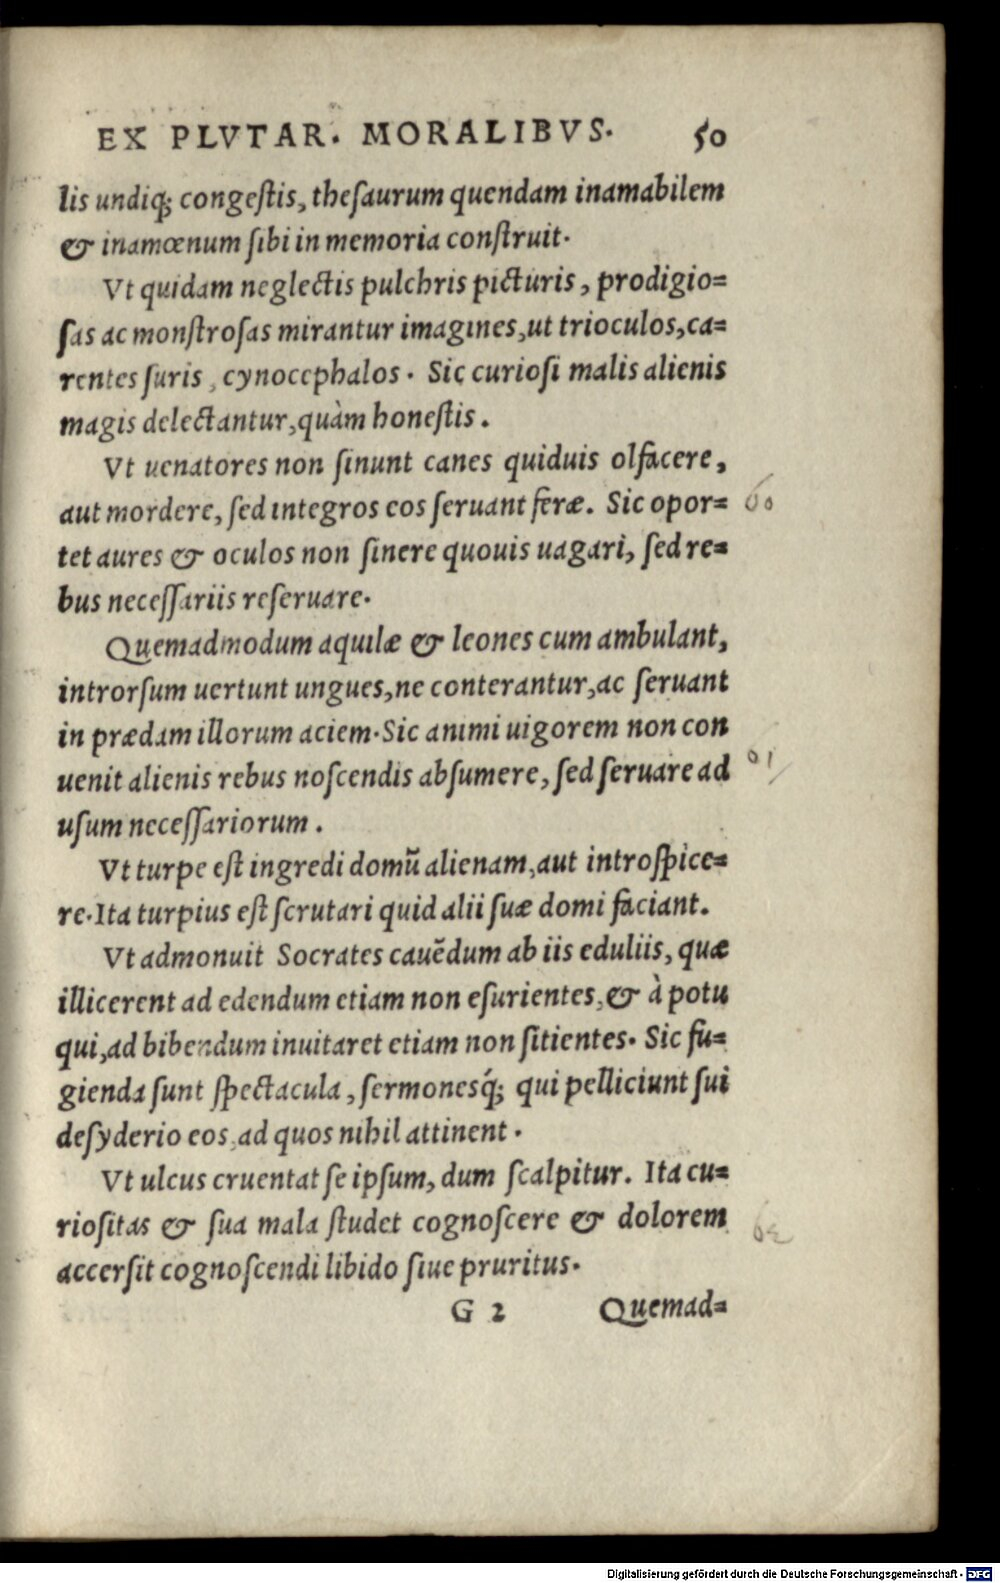 EX PLVTAR. MORALIBVS. 50
lis undiq; congeſtis, theſaurum quendam inamabilem
& inamœnum ſibi in memoria conſtruit.
Vt quidam neglectis pulchris picturis, prodigio=
ſas ac monſtroſas mirantur imagines, ut trioculos, ca=
rentes ſuris, cynocephalos. Sic curioſi malis alienis
magis delectantur, quàm honeſtis.
Vt uenatores non ſinunt canes quiduis olfacere,
aut mordere, ſed integros eos ſeruant feræ. Sic opor= 60
tet aures & oculos non ſinere quouis uagari, ſed re=
bus neceſſariis reſeruare.
Quemadmodum aquilæ & leones cum ambulant,
introrſum uertunt ungues, ne conterantur, ac ſeruant
in prædam illorum aciem. Sic animi uigorem non con
uenit alienis rebus noſcendis abſumere, ſed ſeruare ad
uſum neceſſariorum.
Vt turpe eſt ingredi domũ alienam, aut introſpice=
re. Ita turpius eſt ſcrutari quid alii ſuæ domi faciant.
Vt admonuit Socrates cauẽdum ab iis eduliis, quæ
illicerent ad edendum etiam non eſurientes, & à potu
qui, ad bibendum inuitaret etiam non ſitientes. Sic fu=
gienda ſunt ſpectacula, ſermonesq́; qui pelliciunt ſui
deſyderio eos, ad quos nihil attinent.
Vt ulcus cruentat ſe ipſum, dum ſcalpitur. Ita cu=
rioſitas & ſua mala ſtudet cognoſcere & dolorem
accerſit cognoſcendi libido ſiue pruritus.
G 2 Quemad=
Digitalisierung gefördert durch die Deutsche Forschungsgemeinschaft - DFG